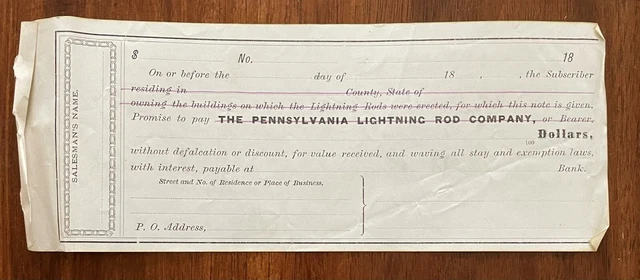 $ No. 18
On or before the day of 18 , , the Subscriber
residing in County, State of
owning the buildings on which the Lightning Rods were erected, for which this note is given,
Promise to pay THE PENNSYLVANIA LIGHTNING ROD COMPANY, or Bearer,
100 Dollars,
without defalcation or discount, for value received, and waving all stay and exemption laws,
with interest, payable at Bank.
Street and No. of Residence or Place of Business,
P. O. Address,
SALESMAN'S NAME.